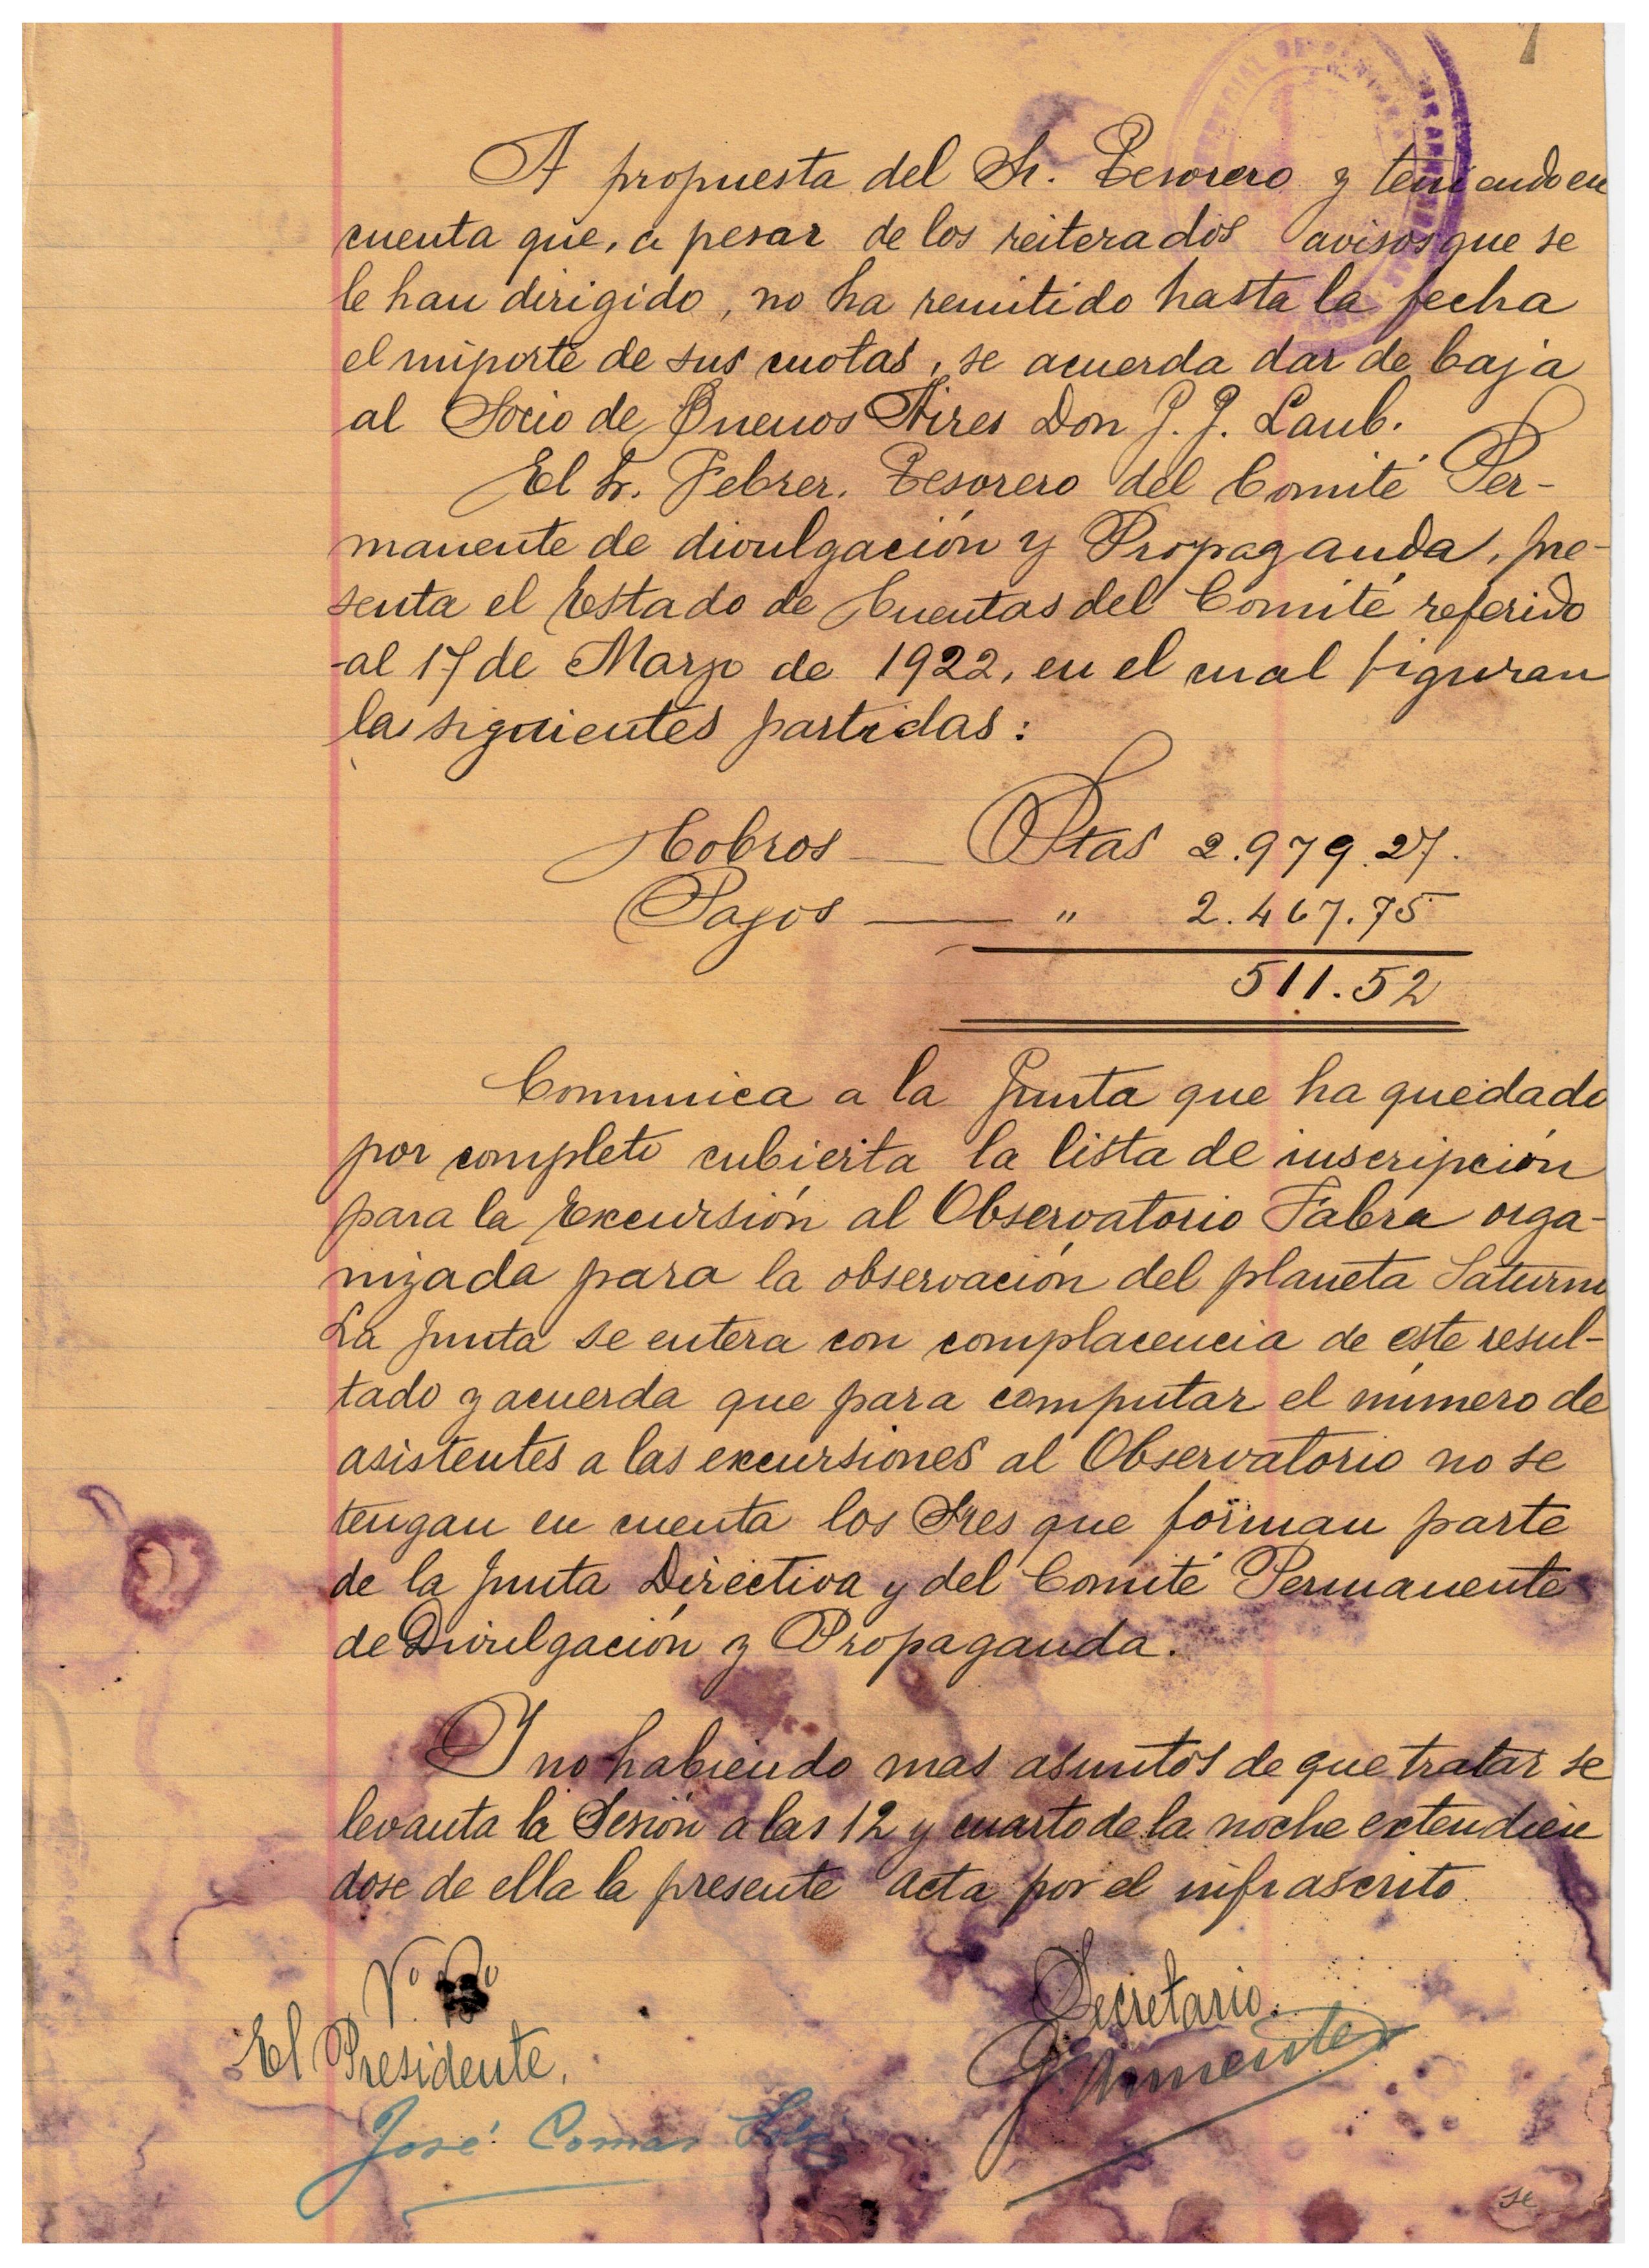 7
A propuesta del Sr. Tesorero y teniendo en
cuenta que, a pesar de los reiterados avisos que se
le han dirigido, no ha remitido hasta la fecha
el importe de sus cuotas, se acuerda dar de baja
al Socio de Buenos Aires Don J. J. Laub.
El Sr. Febrer. Tesorero del Comité Per-
manente de divulgación y Propaganda, pre-
senta el Estado de Cuentas del Comité referido
al 17 de Marzo de 1922, en el cual figuran
las siguientes partidas:
Cobros — Ptas 2.979.27.
Pagos — " 2.467.75
511.52
Comunica a la Junta que ha quedado
por completo cubierta la lista de inscripción
para la Excursión al Observatorio Fabra orga-
nizada para la observación del planeta Saturno
La Junta se entera con complacencia de este resul-
tado y acuerda que para computar el número de
asistentes a las excursiones al Observatorio no se
tengan en cuenta los Sres que forman parte
de la Junta Directiva y del Comité Permanente
de Divulgación y Propaganda.
Y no habiendo mas asuntos de que tratar se
levanta la Sesión a las 12 y cuarto de la noche extendien
dose de ella la presente acta por el infrascrito
Secretario.
Vº Bº
El Presidente,
José Comas Solá
se